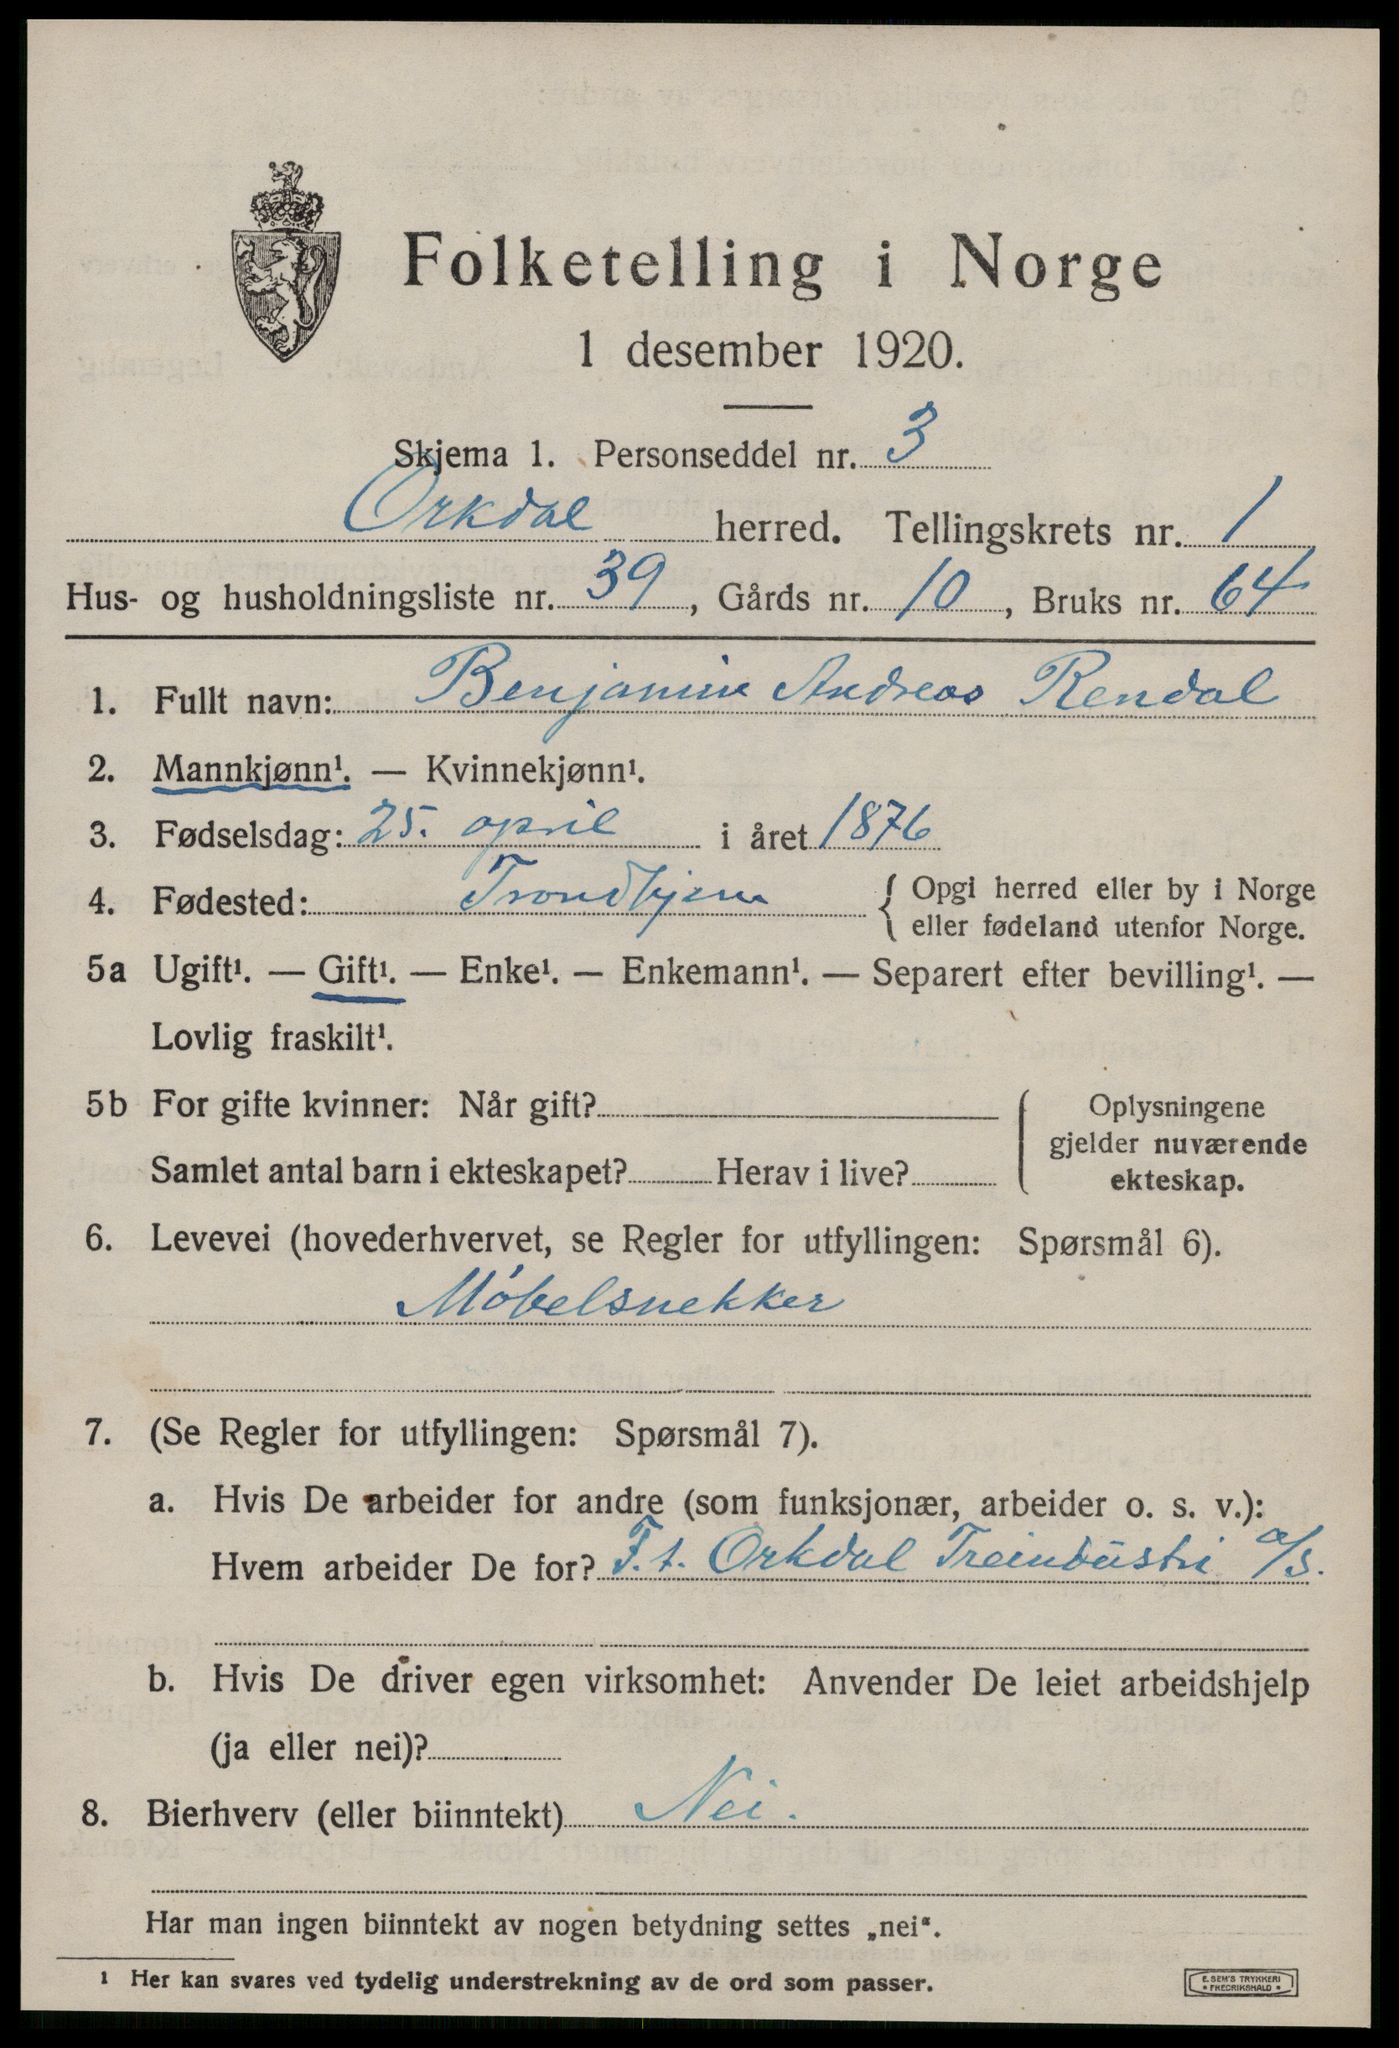 Folketelling i Norge
1 desember 1920.
Skjema 1. Personseddel nr. 3
Orkdal herred. Tellingskrets nr. 1
Hus- og husholdningsliste nr. 39, Gårds nr. 10, Bruks nr. 64
1. Fullt navn: Benjamin Andreas Rendal
2. Mannkjønn¹. — Kvinnekjønn¹.
3. Fødselsdag: 25. april i året 1876
4. Fødested: Trondhjem { Opgi herred eller by i Norge
eller fødeland utenfor Norge.
5a Ugift¹. — Gift¹. — Enke¹. — Enkemann¹. — Separert efter bevilling¹. —
Lovlig fraskilt¹.
5b For gifte kvinner: Når gift?
Samlet antal barn i ekteskapet? Herav i live?
Oplysningene
gjelder nuværende
ekteskap.
6. Levevei (hovederhvervet, se Regler for utfyllingen: Spørsmål 6).
Møbelsnekker
7. (Se Regler for utfyllingen: Spørsmål 7).
a. Hvis De arbeider for andre (som funksjonær, arbeider o. s. v.):
Hvem arbeider De for? F.t. Orkdal Treindustri a/s.
b. Hvis De driver egen virksomhet: Anvender De leiet arbeidshjelp
(ja eller nei)?
8. Bierhverv (eller biinntekt) Nei.
Har man ingen biinntekt av nogen betydning settes „nei“.
¹ Her kan svares ved tydelig understrekning av de ord som passer.
E. SEM'S TRYKKERI
* FREDRIKSHALD *